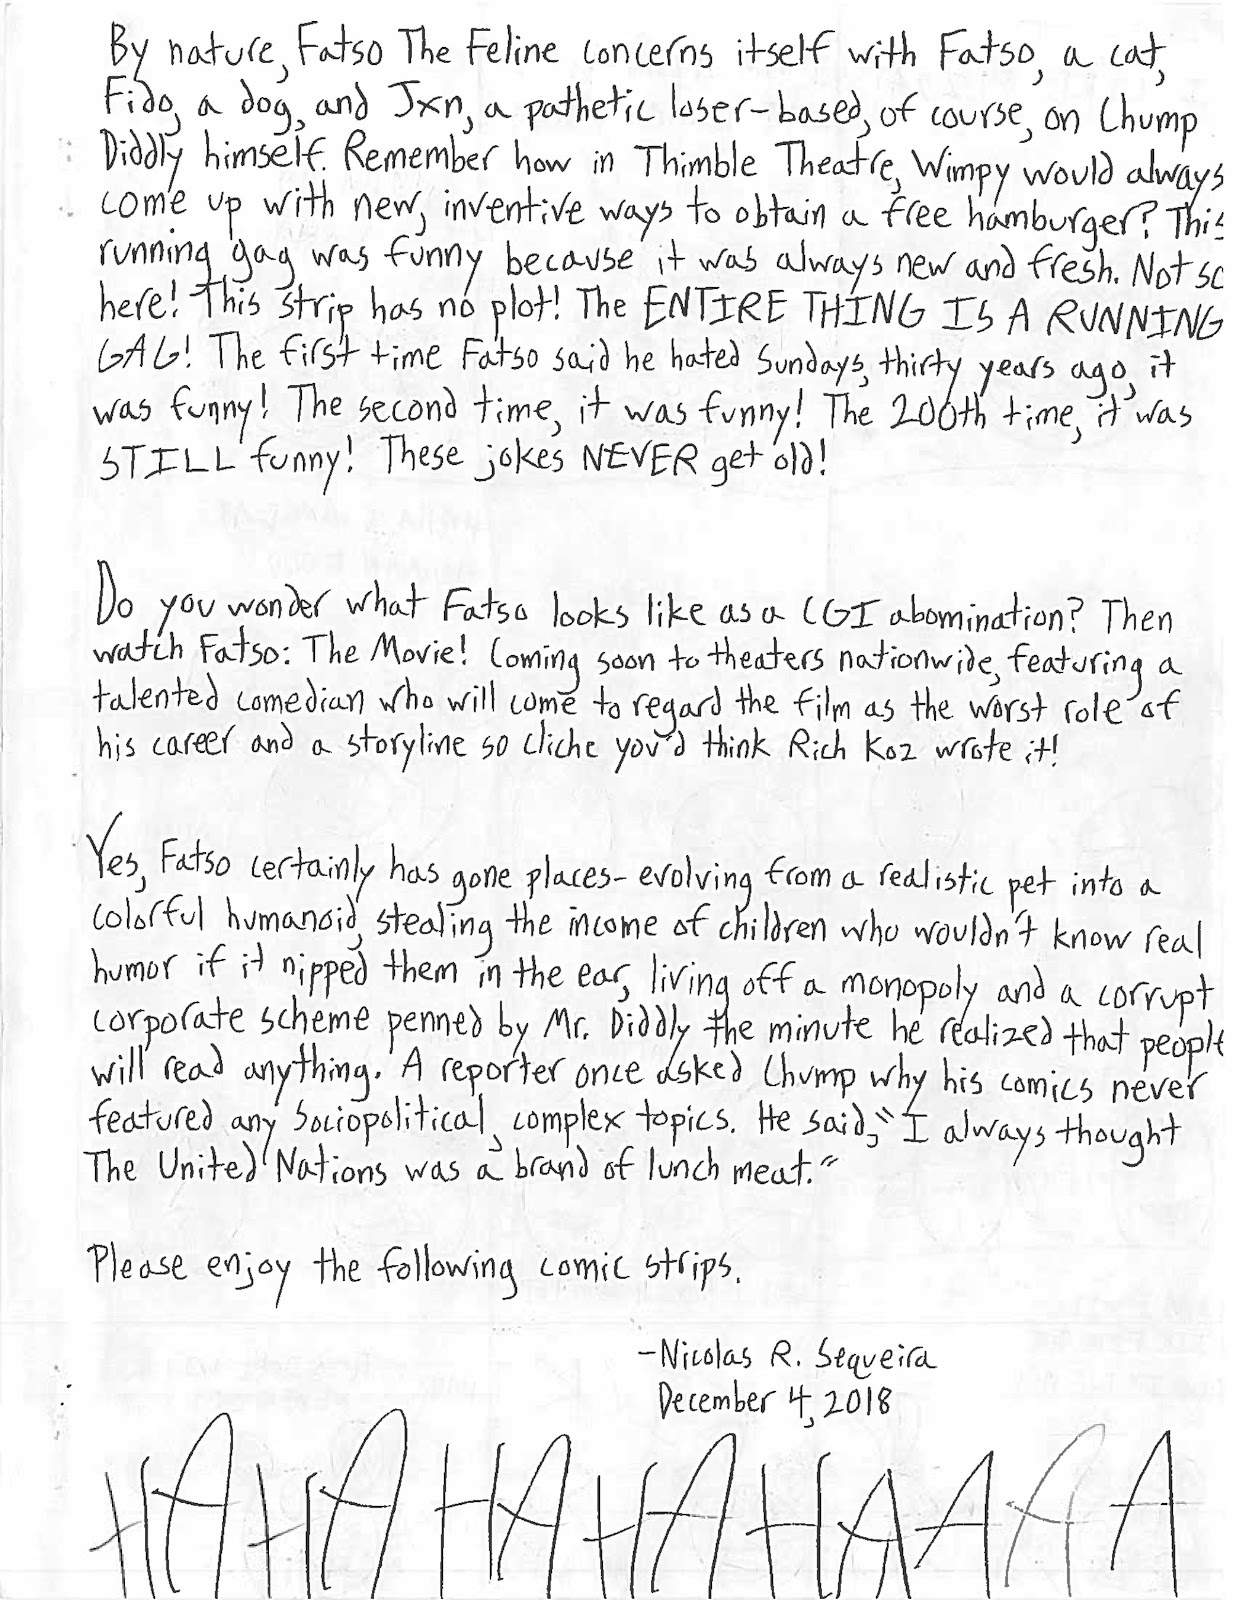 By nature, Fatso The Feline concerns itself with Fatso, a cat,
Fido, a dog, and Jxn, a pathetic loser-based, of course, on Chump
Diddly himself. Remember how in Thimble Theatre, Wimpy would always
come up with new, inventive ways to obtain a free hamburger? This
running gag was funny because it was always new and fresh. Not so
here! This strip has no plot! The ENTIRE THING IS A RUNNING
GAG! The first time Fatso said he hated Sundays, thirty years ago, it
was funny! The second time, it was funny! The 200th time, it was
STILL funny! These jokes NEVER get old!
Do you wonder what Fatso looks like as a CGI abomination? Then
watch Fatso: The Movie! Coming soon to theaters nationwide, featuring a
talented comedian who will come to regard the film as the worst role of
his career and a storyline so cliche you'd think Rich Koz wrote it!
Yes, Fatso certainly has gone places- evolving from a realistic pet into a
colorful humanoid, stealing the income of children who wouldn't know real
humor if it nipped them in the ear, living off a monopoly and a corrupt
corporate scheme penned by Mr. Diddly the minute he realized that people
will read anything. A reporter once asked Chump why his comics never
featured any sociopolitical, complex topics. He said, "I always thought
The United Nations was a brand of lunch meat."
Please enjoy the following comic strips.
-Nicolas R. Sequeira
December 4, 2018
HAHAHAHAHAAAA